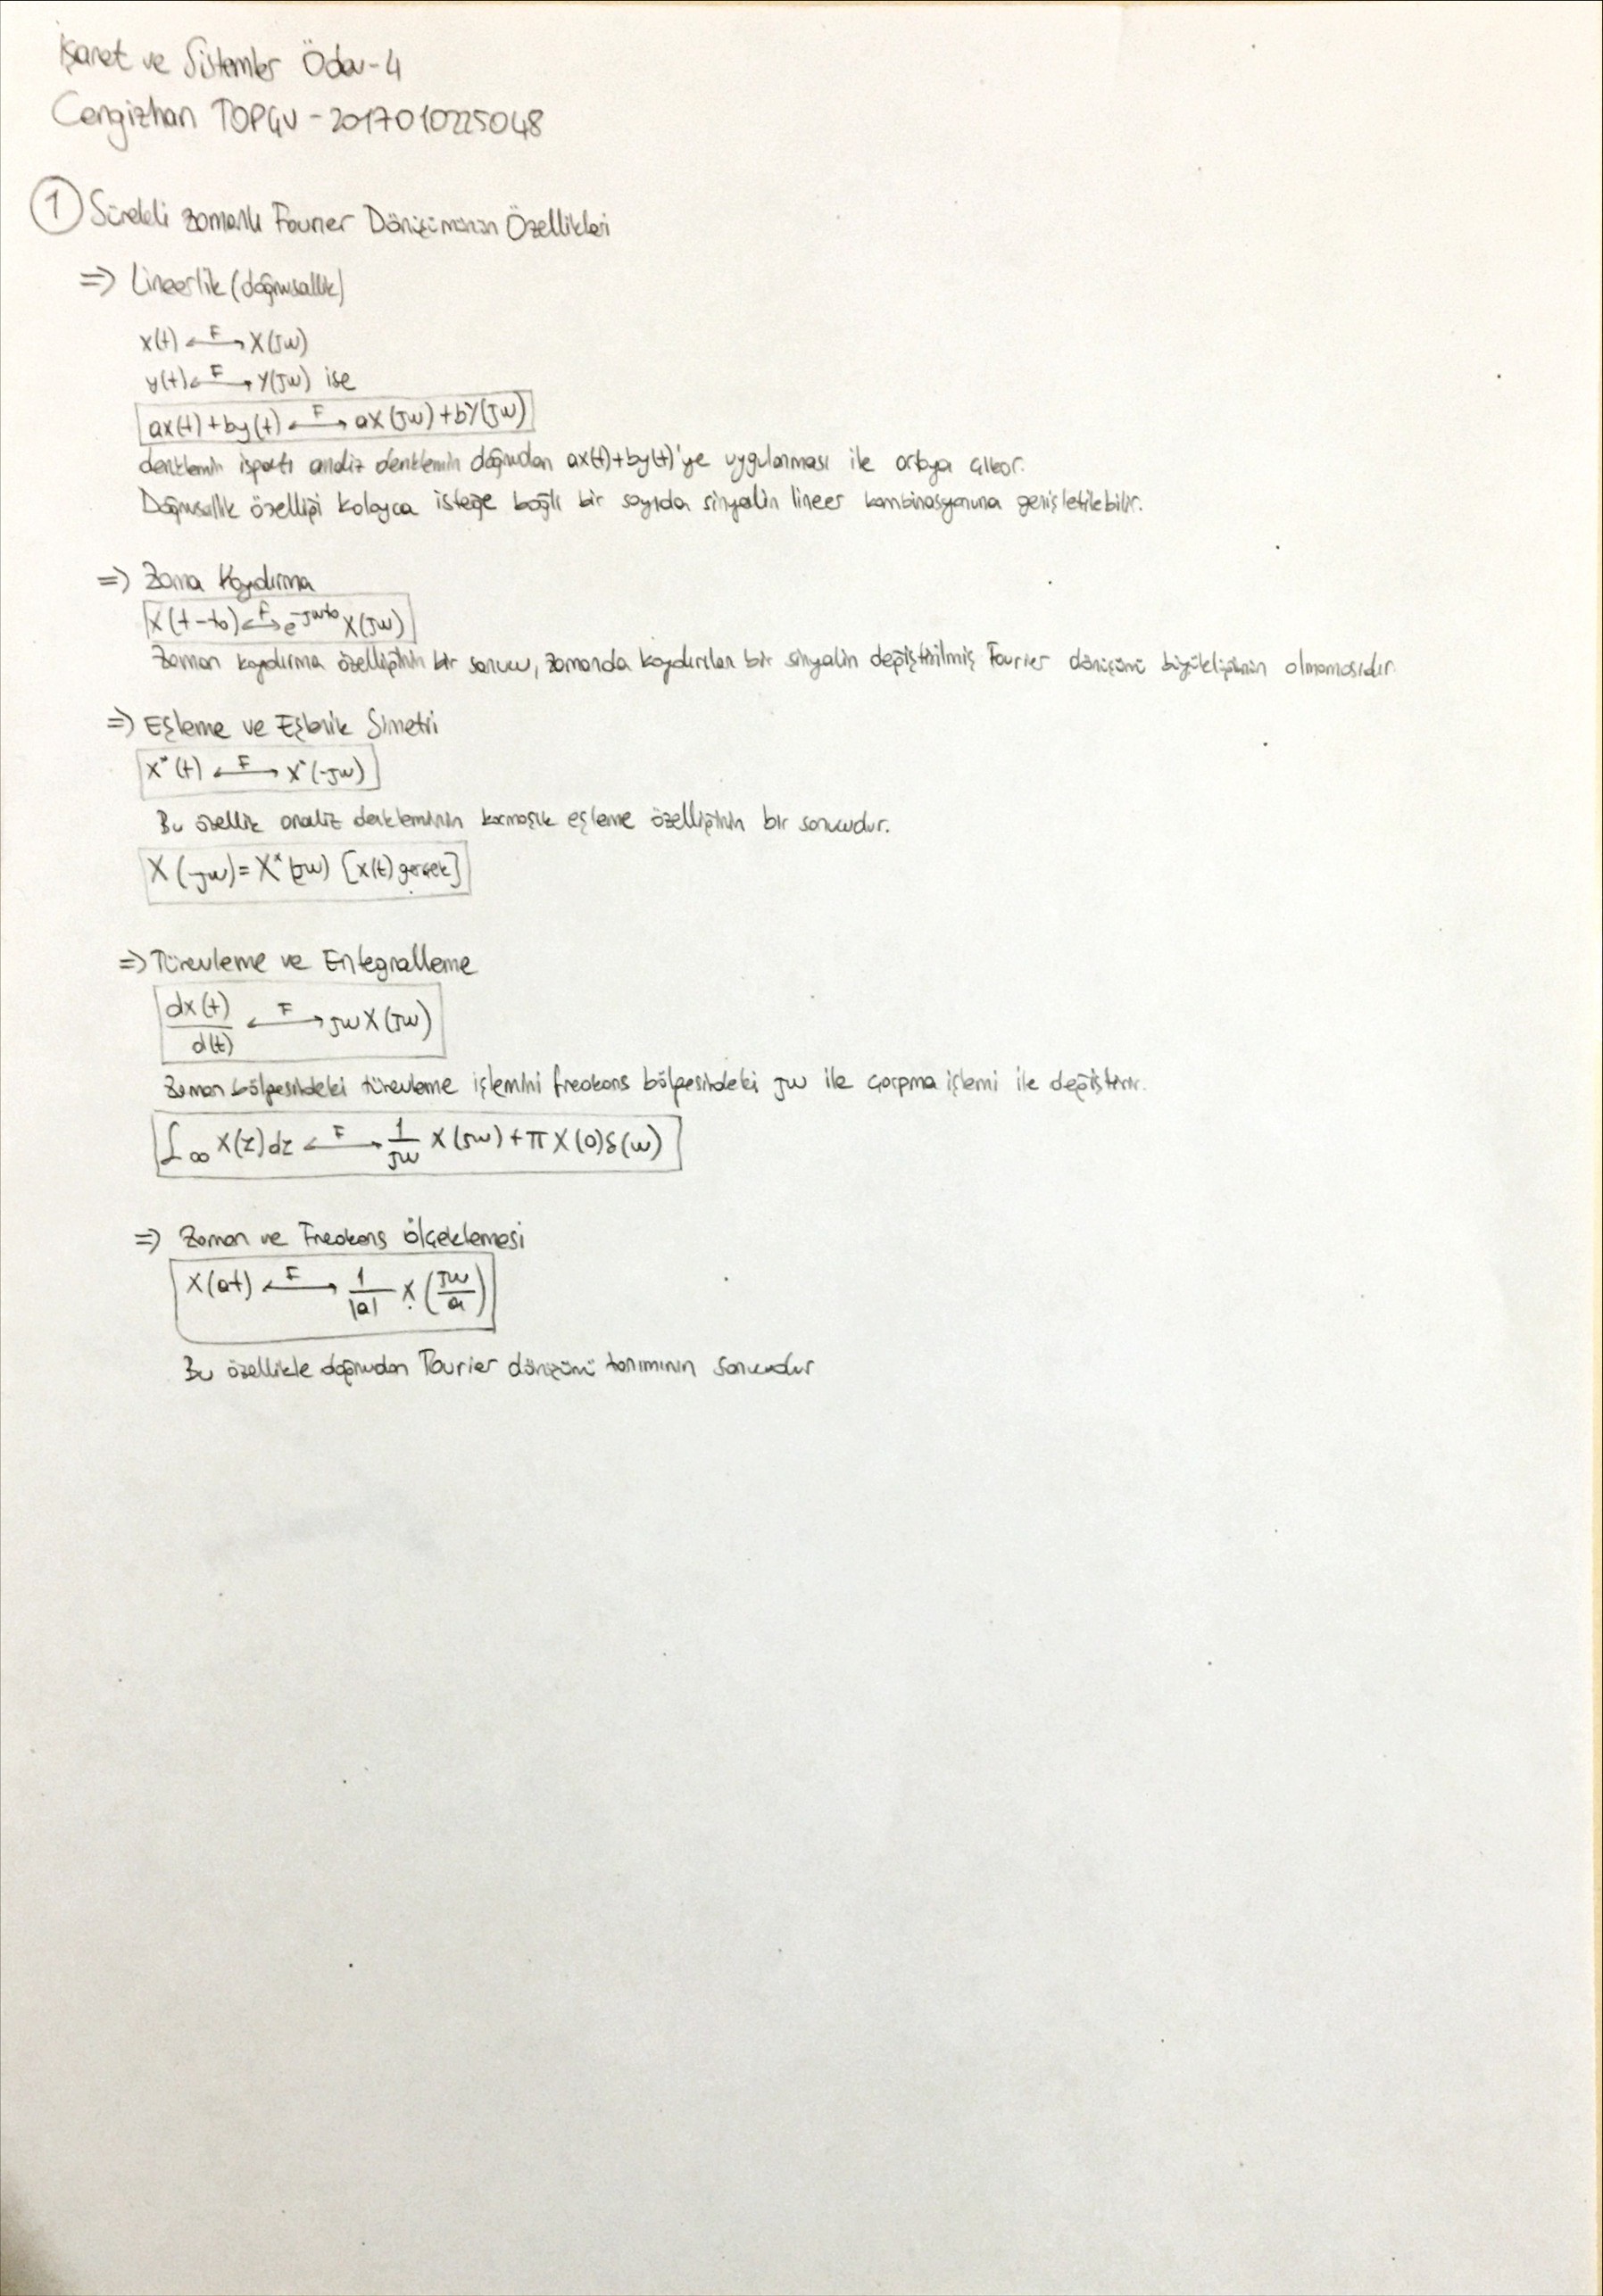 İşaret ve Sistemler Ödev-4
Cengizhan TOPÇU - 2017010225048
① Sürekli zamanlı Fourier Dönüşümünün Özellikleri
=> Lineerlik (doğrusallık)
x(t) <-F-> X(jw)
y(t) <-F-> Y(jw) ise
ax(t)+by(t) <-F-> aX(jw)+bY(jw)
denklemin ispatı analiz denklemin doğrudan ax(t)+by(t)'ye uygulanması ile ortaya çıkar.
Doğrusallık özelliği kolayca isteğe bağlı bir sayıda sinyalin lineer kombinasyonuna genişletilebilir.
=> Zama Kaydırma
x(t-t₀) <-F-> e^-jwt₀ X(jw)
Zaman kaydırma özelliğinin bir sonucu, zamanda kaydırılan bir sinyalin değiştirilmiş Fourier dönüşümü büyüklüğünün olmamasıdır.
=> Eşleme ve Eşlenik Simetri
x*(t) <-F-> X*(-jw)
Bu özellik analiz denkleminin karmaşık eşleme özelliğinin bir sonucudur.
X(-jw) = X*(jw) [x(t) gerçek]
=> Türevleme ve Entegralleme
dx(t)/d(t) <-F-> jwX(jw)
Zaman bölgesindeki türevleme işlemini freakans bölgesindeki jw ile çarpma işlemi ile değiştirir.
∫∞ x(z)dz <-F-> 1/jw X(jw)+πX(0)δ(w)
=> Zaman ve Freakans ölçeklemesi
x(at) <-F-> 1/|a| X(jw/a)
Bu özellikle doğrudan Fourier dönüşümü tanımının sonucudur